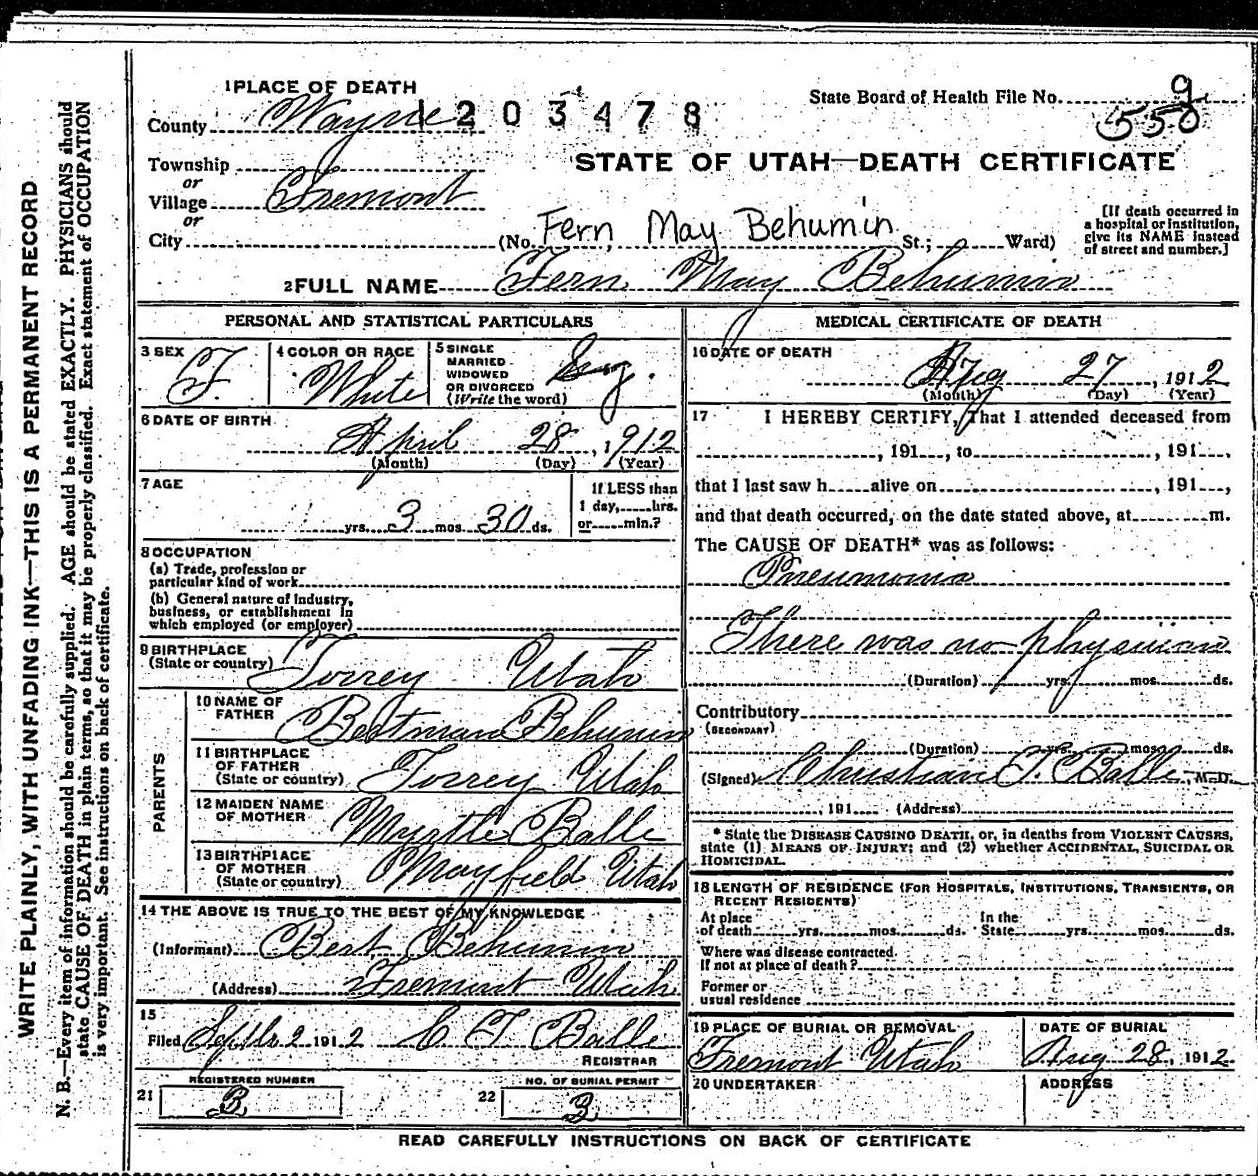 1 PLACE OF DEATH
County Wayne
1203478
State Board of Health File No. 9
550
Township
or
Village Fremont
or
City
STATE OF UTAH—DEATH CERTIFICATE
(No. Fern May Behumin St.; Ward)
[If death occurred in a hospital or institution, give its NAME instead of street and number.]
2 FULL NAME Fern May Behumin
PERSONAL AND STATISTICAL PARTICULARS
3 SEX F.
4 COLOR OR RACE White
5 SINGLE MARRIED WIDOWED OR DIVORCED (Write the word) Sing.
6 DATE OF BIRTH
April 28, 1912
(Month) (Day) (Year)
7 AGE
yrs. 3 mos. 30 ds.
If LESS than 1 day, hrs. or min.?
8 OCCUPATION
(a) Trade, profession or particular kind of work
(b) General nature of Industry, business, or establishment in which employed (or employer)
9 BIRTHPLACE
(State or country) Torrey Utah
PARENTS
10 NAME OF FATHER Behunin
11 BIRTHPLACE OF FATHER (State or country) Torrey Utah
12 MAIDEN NAME OF MOTHER Myrtle Balle
13 BIRTHPLACE OF MOTHER (State or country) Mayfield Utah
14 THE ABOVE IS TRUE TO THE BEST OF MY KNOWLEDGE
(Informant) Bert Behunin
(Address) Fremont Utah
15
Filed Sept 2 1912 C T Balle
REGISTRAR
21 REGISTERED NUMBER 3
22 NO. OF BURIAL PERMIT 3
MEDICAL CERTIFICATE OF DEATH
16 DATE OF DEATH
Aug 27, 1912
(Month) (Day) (Year)
17 I HEREBY CERTIFY, That I attended deceased from
, 191 , to , 191 ,
that I last saw h alive on , 191 ,
and that death occurred, on the date stated above, at m.
The CAUSE OF DEATH* was as follows:
Pneumonia
There was no physician
(Duration) yrs. mos. ds.
Contributory
(SECONDARY)
(Duration) yrs. mos. ds.
(Signed) Christian T. Balle M.D.
, 191 (Address)
* State the DISEASE CAUSING DEATH, or, in deaths from VIOLENT CAUSES, state (1) MEANS OF INJURY; and (2) whether ACCIDENTAL, SUICIDAL OR HOMICIDAL.
18 LENGTH OF RESIDENCE (FOR HOSPITALS, INSTITUTIONS, TRANSIENTS, OR RECENT RESIDENTS)
At place of death yrs. mos. ds. In the State yrs. mos. ds.
Where was disease contracted. If not at place of death?
Former or usual residence
19 PLACE OF BURIAL OR REMOVAL
Fremont Utah
DATE OF BURIAL
Aug 28, 1912
20 UNDERTAKER
ADDRESS
READ CAREFULLY INSTRUCTIONS ON BACK OF CERTIFICATE
WRITE PLAINLY, WITH UNFADING INK—THIS IS A PERMANENT RECORD
N. B.—Every item of information should be carefully supplied. AGE should be stated EXACTLY. PHYSICIANS should
state CAUSE OF DEATH in plain terms, so that it may be properly classified. Exact statement of OCCUPATION
is very important. See instructions on back of certificate.